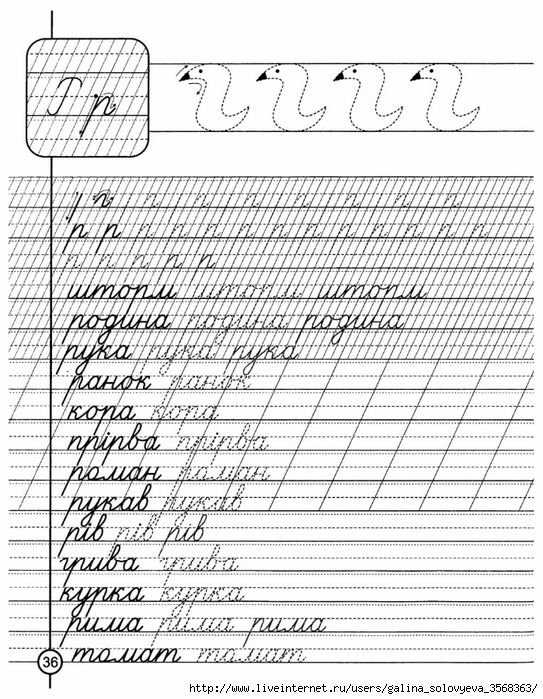 Р р
р р р р р р р р р р р р р р
р р р р р
шторм шторм шторм
родина родина родина
рука рука рука
ранок ранок
кора кора
прірва прірва
роман роман
рукав рукав
рів рів рів
грива грива
курка курка
рима рима рима
томат томат
36
http://www.liveinternet.ru/users/galina_solovyeva_3568363/